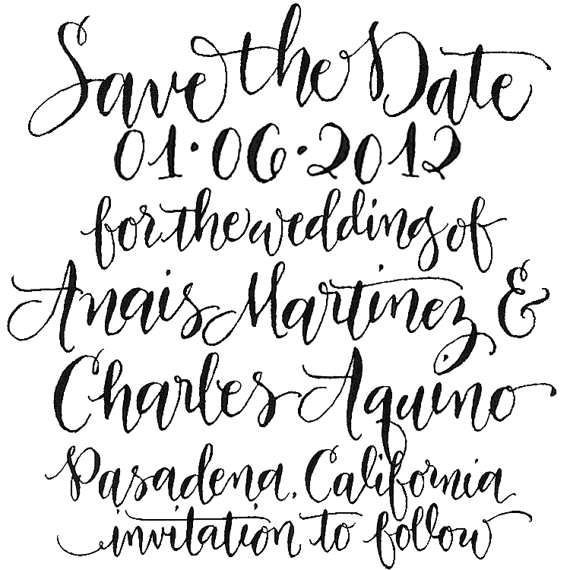 Save the Date
01·06·2012
for the wedding of
Anais Martinez &
Charles Aquino
Pasadena, California
invitation to follow